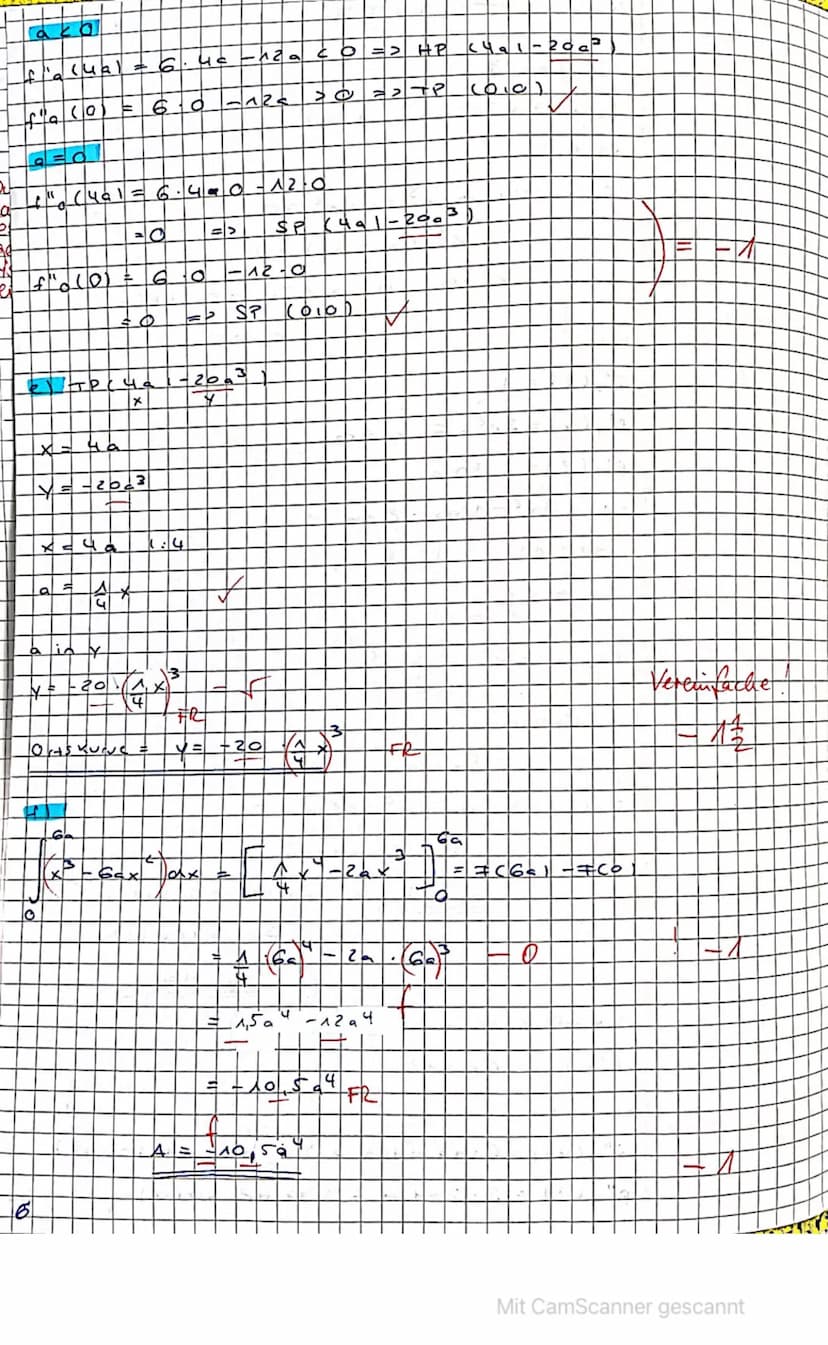 a < 0
f''a (4a) = 6 · 4a - 12a < 0 => HP (4a | -20a³)
f''a (0) = 6 · 0 - 12a > 0 => TP (0|0) ✓
a = 0
f''0 (4a) = 6 · 4 · 0 - 12 · 0
= 0 => SP (4a | -20a³)
) = -1
f''0 (0) = 6 · 0 - 12 · 0
= 0 => SP (0|0) ✓
e) TP (4a | -20a³)
x y
x = 4a
y = -20a³
x = 4a | :4
a = 1/4 x ✓
a in y
y = -20 · (1/4 x)³ FR
Vereinfache!
- 1 1/2
Ortskurve = y = -20 · (1/4 x)³ FR
f)
∫₀^6a (x³ - 6ax²) dx = [1/4 x⁴ - 2ax³]₀^6a = F(6a) - F(0)
= 1/4 · (6a)⁴ - 2a · (6a)³ - 0 ! -1
= 1,5a⁴ - 12a⁴ f
= -10,5a⁴ FR
f
A = -10,5a⁴ -1
6
Mit CamScanner gescannt